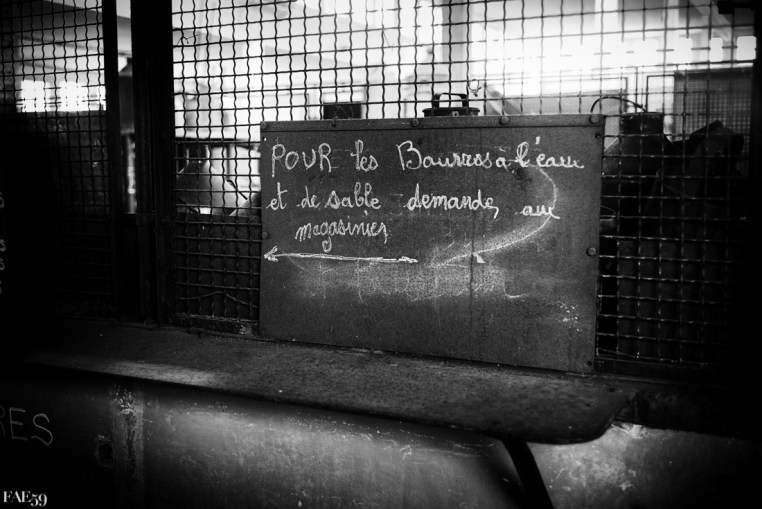 POUR les Bourres à l'eau
et de sable demandez aux
magasinier
RES
FAE59